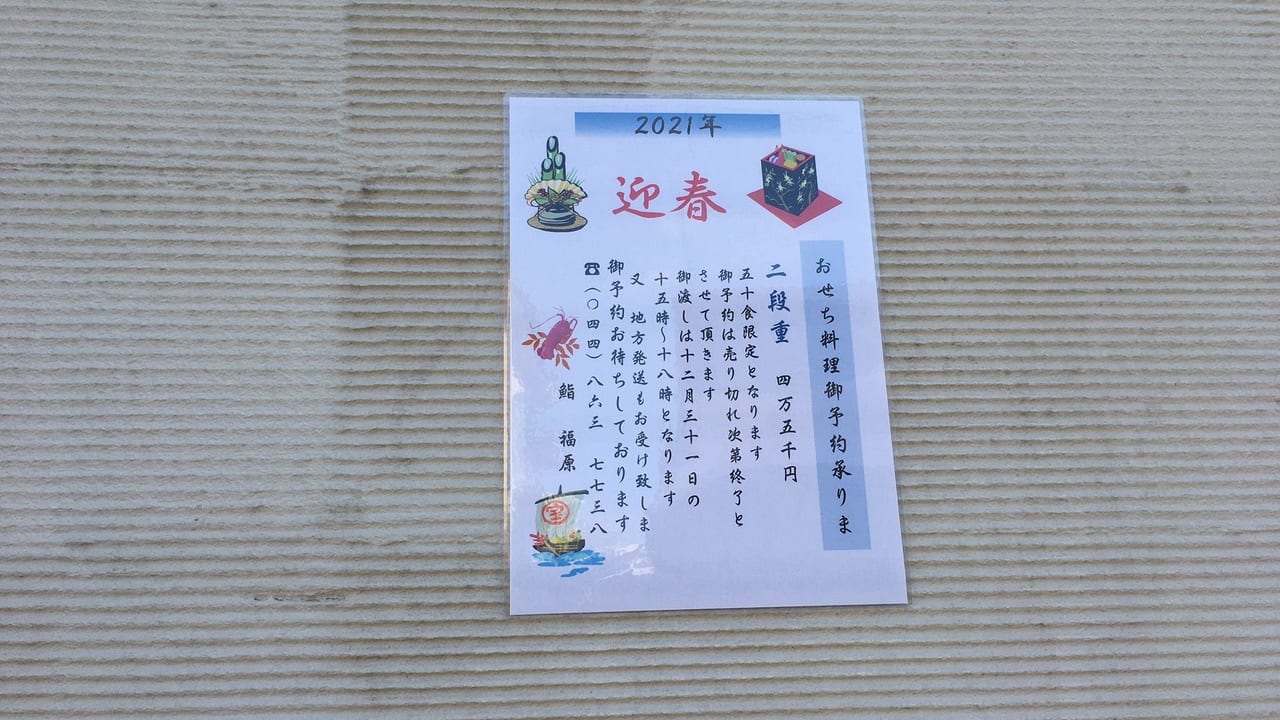 2021年
迎春
おせち料理御予約承りま
二段重 四万五千円
五十食限定となります
御予約は売り切れ次第終了と
させて頂きます
御渡しは十二月三十一日の
十五時～十八時となります
又 地方発送もお受け致しま
御予約お待ちしております
☎(〇四四)八六三 七七三八
鮨 福原
宝